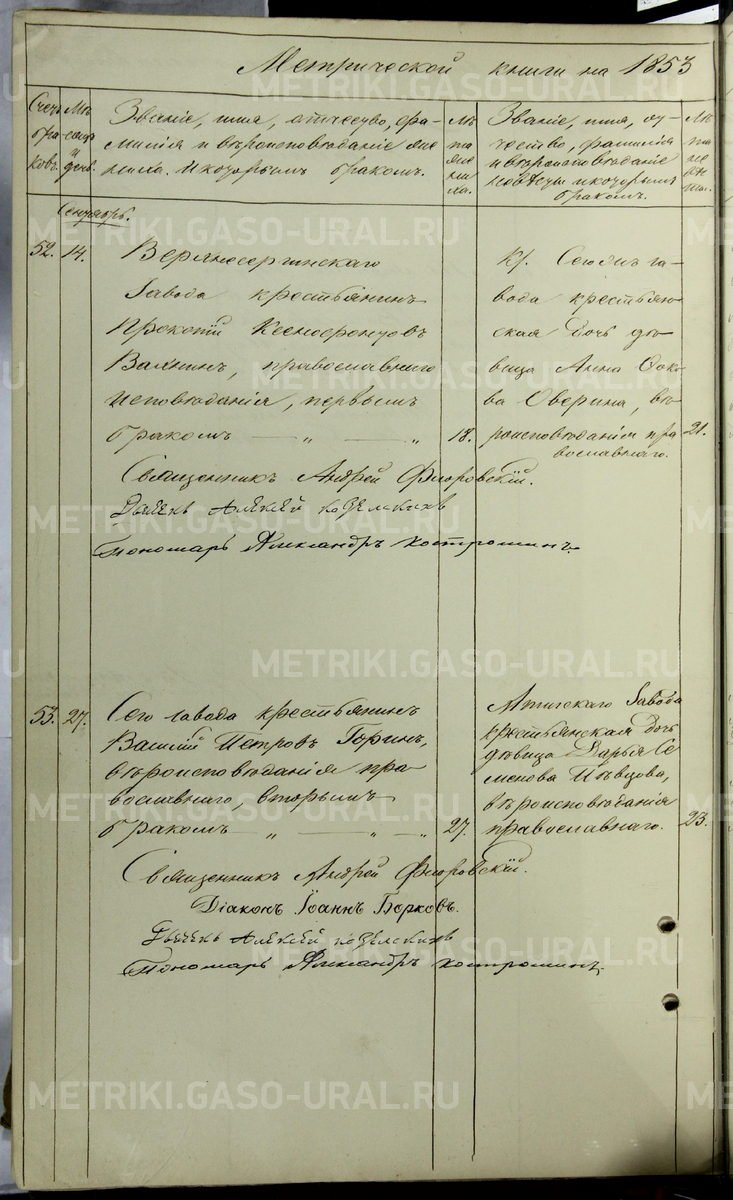 Метрической книги на 1853
Счетъ браковъ.
Мѣсяцъ и день.
Званіе, имя, отчество, фамилія и вѣроисповѣданіе жениха. И которымъ бракомъ.
Лѣта жениха.
Званіе, имя, отчество, фамилія и вѣроисповѣданіе невѣсты и которымъ бракомъ.
Лѣта невѣсты.
Сентябрь.
52. 14.
Верхнесергинскаго
завода крестьянинъ
Прокопій Ксенофонтовъ
Вахнинъ, православнаго
исповѣданія, первымъ
бракомъ — „ — „ 18.
Сего за-
вода крестьян-
ская дочь дѣ-
вица Анна
ва Оверина, вѣ-
роисповѣданія пра- 21.
вославнаго.
Священникъ Андрей Флоровскій.
Дьячекъ Алексѣй
Пономарь Александръ Костроминъ.
53. 27.
Сего завода крестьянинъ
Василій Петровъ Горинъ,
вѣроисповѣданія пра-
вославнаго, вторымъ
бракомъ — „ — „ — „ 27.
Атигскаго завода
крестьянская дочь
дѣвица Дарья Се-
менова Пѣвцова,
вѣроисповѣданія
православнаго. 23.
Священникъ Андрей Флоровскій.
Діаконъ Іоаннъ Борковъ.
Дьячекъ Алексѣй
Пономарь Александръ Костроминъ.
METRIKI.GASO-URAL.RU